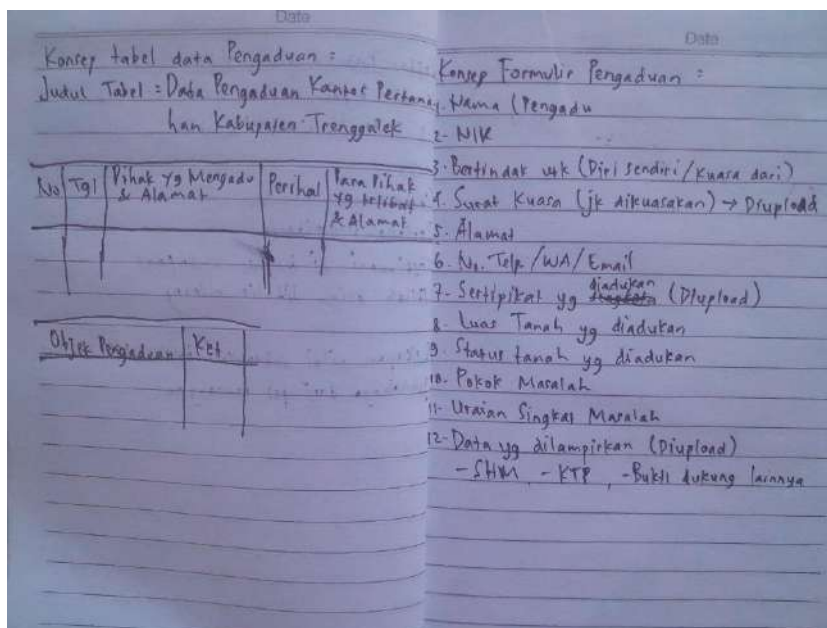 Data
Konsep tabel data Pengaduan :
Judul Tabel : Data Pengaduan Kantor Pertana
han Kabupaten Trenggalek
No | Tgl | Pihak yg Mengadu & Alamat | Perihal | Para Pihak yg terlibat & Alamat
Objek Pengaduan | Ket
Data
Konsep Formulir Pengaduan :
1. Nama (Pengadu
2- NIK
3. Bertindak utk (Diri sendiri/Kuasa dari)
4. Surat Kuasa (jk dikuasakan) → Diupload
5. Alamat
6. No. Telp/WA/Email
7- Sertipikat yg diadukan (Diupload)
8. Luas Tanah yg diadukan
9. Status tanah yg diadukan
10. Pokok Masalah
11- Uraian Singkat Masalah
12- Data yg dilampirkan (Diupload)
- SHM, - KTP, - Bukti dukung lainnya